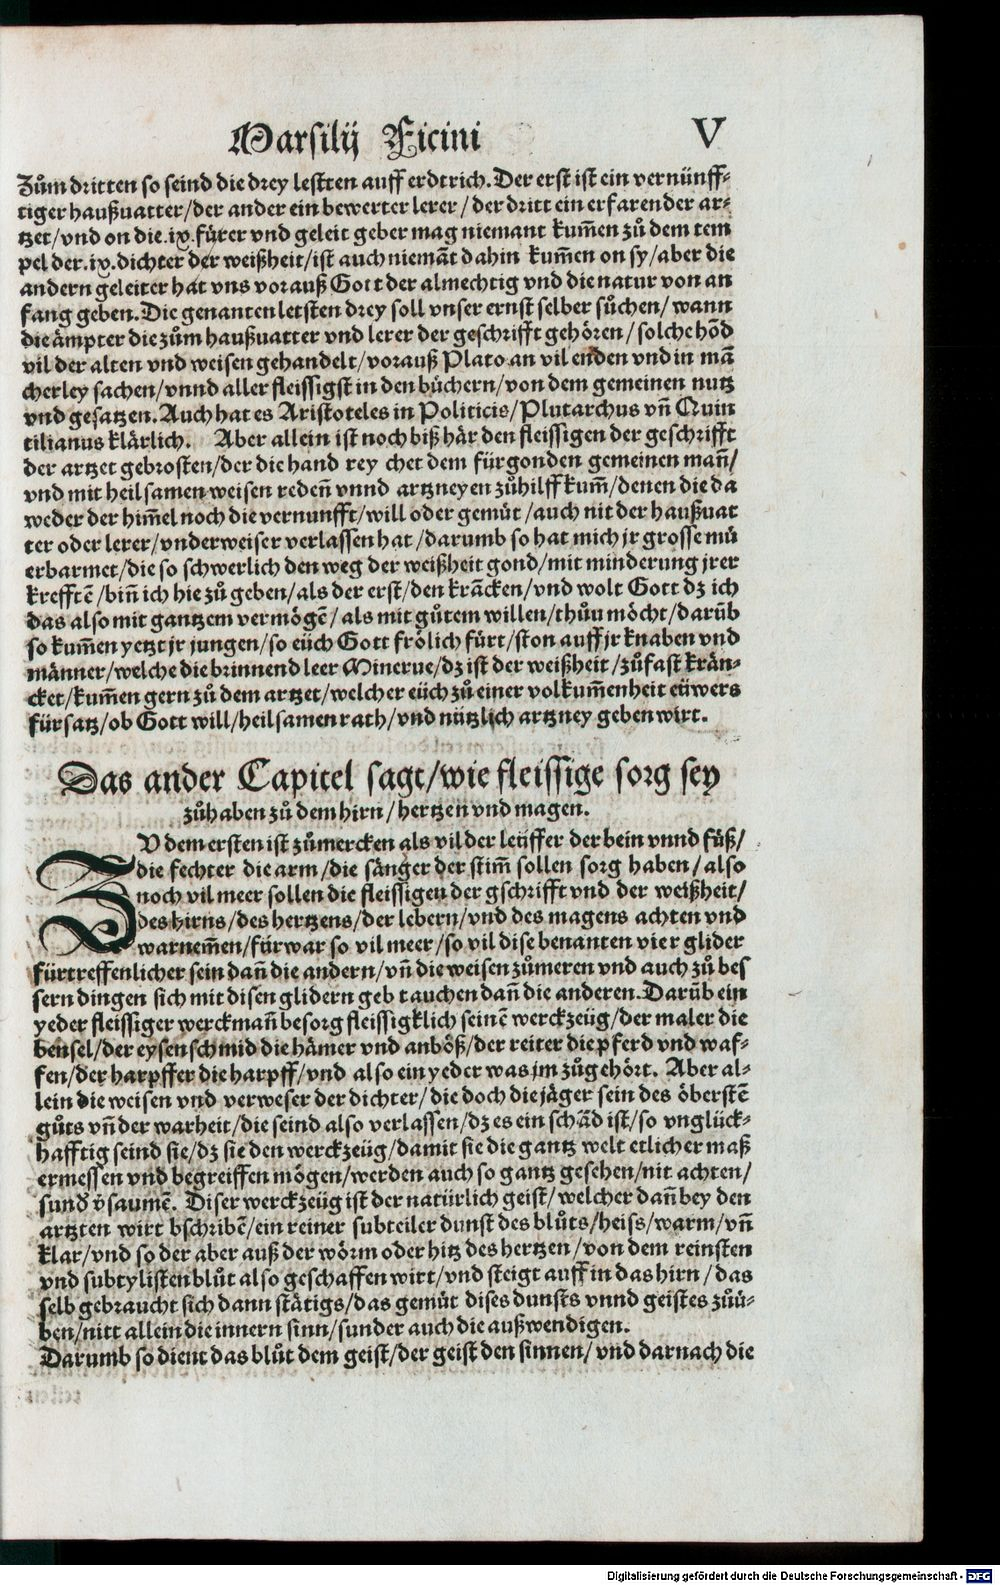 Marsilij Ficini V
Zům dritten so seind die drey lestten auff erdtrich. Der erst ist ein vernünff-
tiger haußuatter/der ander ein bewerter lerer/ der dritt ein erfarender ar-
tzet/vnd on die.ix.fürer vnd geleit geber mag niemant kum̃en zů dem tem
pel der.ix.dichter der weißheit/ist auch niemãt dahin kum̃en on sy/aber die
andern geleiter hat vns vorauß Gott der almechtig vnd die natur von an
fang geben. Die genanten letsten drey soll vnser ernst selber sůchen/ wann
die ämpter die zům haußuatter vnd lerer der geschrifft gehören/solche hõd
vil der alten vnd weisen gehandelt/vorauß Plato an vil enden vnd in mã
cherley sachen/vnnd aller fleissigst in den büchern/von dem gemeinen nutz
vnd gesatzen. Auch hat es Aristoteles in Politicis/Plutarchus vñ Quin
tilianus klärlich. Aber allein ist noch biß här den fleissigen der geschrifft
der artzet gebrosten/der die hand rey chet dem für gonden gemeinen mañ/
vnd mit heilsamen weisen redeñ vnnd artzneyen zůhilff kum̃/denen die da
weder der him̃el noch die vernunfft/will oder gemüt/auch nit der haußuat
ter oder lerer/vnderweiser verlassen hat/darumb so hat mich jr grosse mü
erbarmet/die so schwerlich den weg der weißheit gond/mit minderung jrer
krefftẽ/biñ ich hie zů geben/als der erst/den krãcken/vnd wolt Gott dz ich
das also mit gantzem vermögẽ/ als mit gůtem willen/thůn möcht/darũb
so kum̃en yetzt jr jungen/so eüch Gott frölich fürt/ston auff jr knaben vnd
männer/welche die brinnend leer Minerue/dz ist der weißheit/zůfast krän-
cket/kum̃en gern zů dem artzet/welcher eüch zů einer volkum̃enheit eüwers
fürsatz/ob Gott will/heilsamen rath/vnd nützlich artzney geben wirt.
Das ander Capitel sagt/wie fleissige sorg sey
zůhaben zů dem hirn/hertzen vnd magen.
ZV dem ersten ist zůmercken als vil der leüffer der bein vnnd füß/
die fechter die arm/die sänger der stim̃ sollen sorg haben/also
noch vil meer sollen die fleissigen der gschrifft vnd der weißheit/
des hirns/des hertzens/der lebern/vnd des magens achten vnd
warnem̃en/fürwar so vil meer/so vil dise benanten vier glider
fürtreffenlicher sein dañ die andern/vñ die weisen zůmeren vnd auch zů bes
sern dingen sich mit disen glidern geb rauchen dañ die anderen. Darũb ein
yeder fleissiger werckmañ besorg fleissigklich seinẽ werckzeüg/der maler die
bensel/der eysenschmid die hämer vnd anböß/der reiter die pferd vnd waf-
fen/der harpffer die harpff/vnd also ein yeder was jm zůgehört. Aber al-
lein die weisen vnd verweser der dichter/die doch die jäger sein des öberstẽ
gůts vñ der warheit/die seind also verlassen/dz es ein schãd ist/so vnglück-
hafftig seind sie/dz sie den werckzeüg/damit sie die gantz welt etlicher maß
ermessen vnd begreiffen mögen/werden auch so gantz gesehen/nit achten/
sunď v̈saumẽ. Diser werckzeüg ist der natürlich geist/welcher dañ bey den
artzten wirt bschribẽ/ein reiner subteiler dunst des blůts/heiss/warm/vñ
klar/vnd so der aber auß der wörm oder hitz des hertzen/von dem reinsten
vnd subtylisten blůt also geschaffen wirt/vnd steigt auff in das hirn/das
selb gebraucht sich dann stätigs/das gemüt dises dunsts vnnd geistes zůü-
ben/nitt allein die innern sinn/sunder auch die außwendigen.
Darumb so dient das blůt dem geist/der geist den sinnen/vnd darnach die
Digitalisierung gefördert durch die Deutsche Forschungsgemeinschaft - DFG